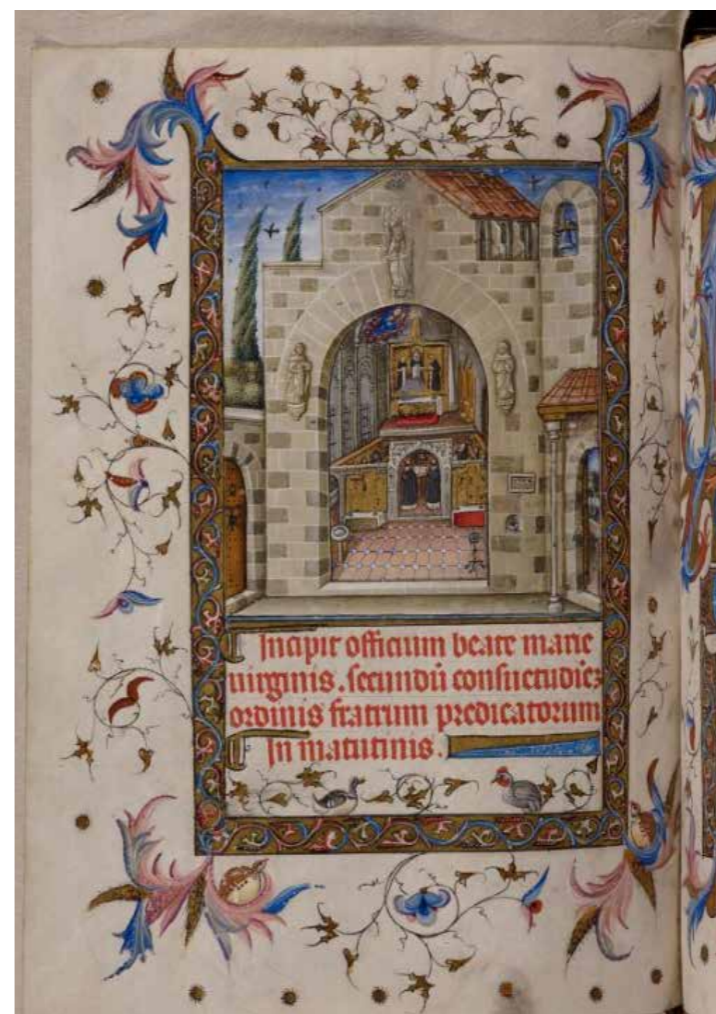 Incipit officium beate marie
uirginis. secundū consuetudiēꝫ
ordinis fratrum predicatorum
In matutinis.